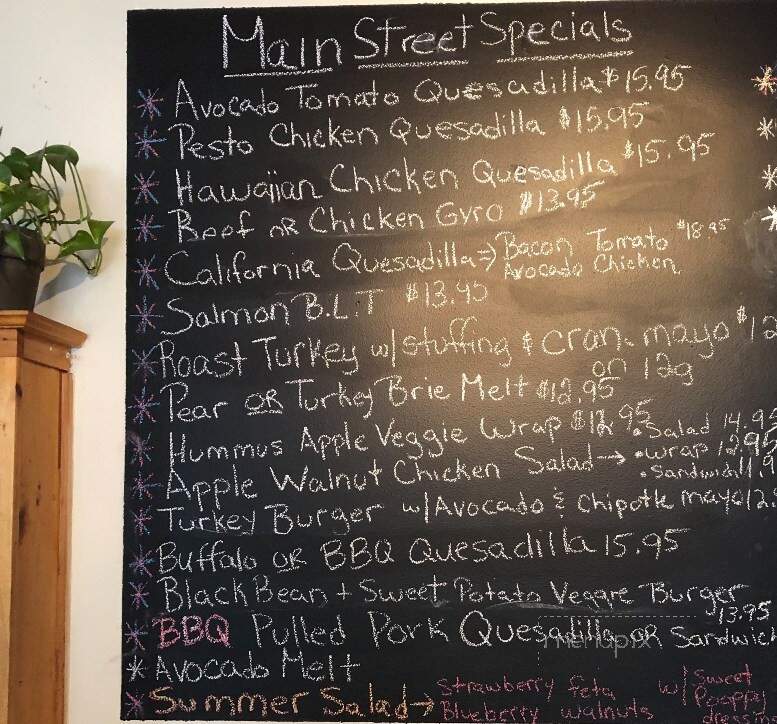 Main Street Specials
* Avocado Tomato Quesadilla $15.95
* Pesto Chicken Quesadilla $15.95
* Hawaiian Chicken Quesadilla $15.95
* Beef OR Chicken Gyro $13.95
* California Quesadilla => Bacon Tomato $18.95
Avocado Chicken
* Salmon B.L.T $13.95
* Roast Turkey w/stuffing & cran. mayo $12
on 12g
* Pear OR Turkey Brie Melt $12.95
* Hummus Apple Veggie Wrap $12.95
* Apple Walnut Chicken Salad → • Salad 14.95
• wrap 12.95
• Sandwich 11.9
* Turkey Burger w/Avocado & Chipotle mayo 12.
* Buffalo OR BBQ Quesadilla 15.95
* Black Bean + Sweet Potato Veggie Burger
13.95
* BBQ Pulled Pork Quesadilla OR Sandwich
menupix
* Avocado Melt
* Summer Salad → Strawberry feta w/ Sweet
Blueberry walnuts Poappy